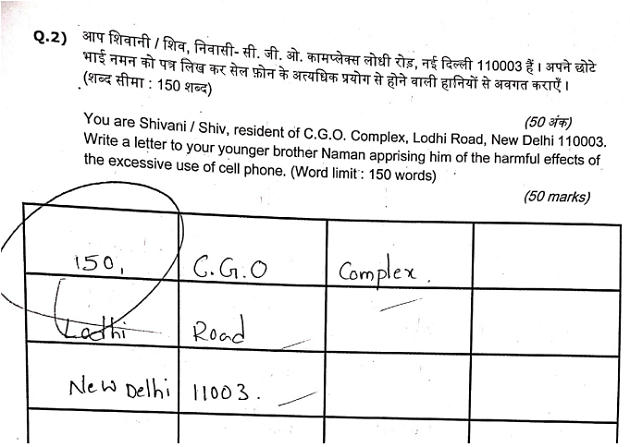 Q.2) आप शिवानी / शिव, निवासी- सी. जी. ओ. कामप्लेक्स लोधी रोड़, नई दिल्ली 110003 हैं। अपने छोटे
भाई नमन को पत्र लिख कर सेल फ़ोन के अत्यधिक प्रयोग से होने वाली हानियों से अवगत कराएँ।
(शब्द सीमा : 150 शब्द)
(50 अंक)
You are Shivani / Shiv, resident of C.G.O. Complex, Lodhi Road, New Delhi 110003.
Write a letter to your younger brother Naman apprising him of the harmful effects of
the excessive use of cell phone. (Word limit : 150 words)
(50 marks)
150, C.G.O Complex.
Lodhi Road
New Delhi 11003.